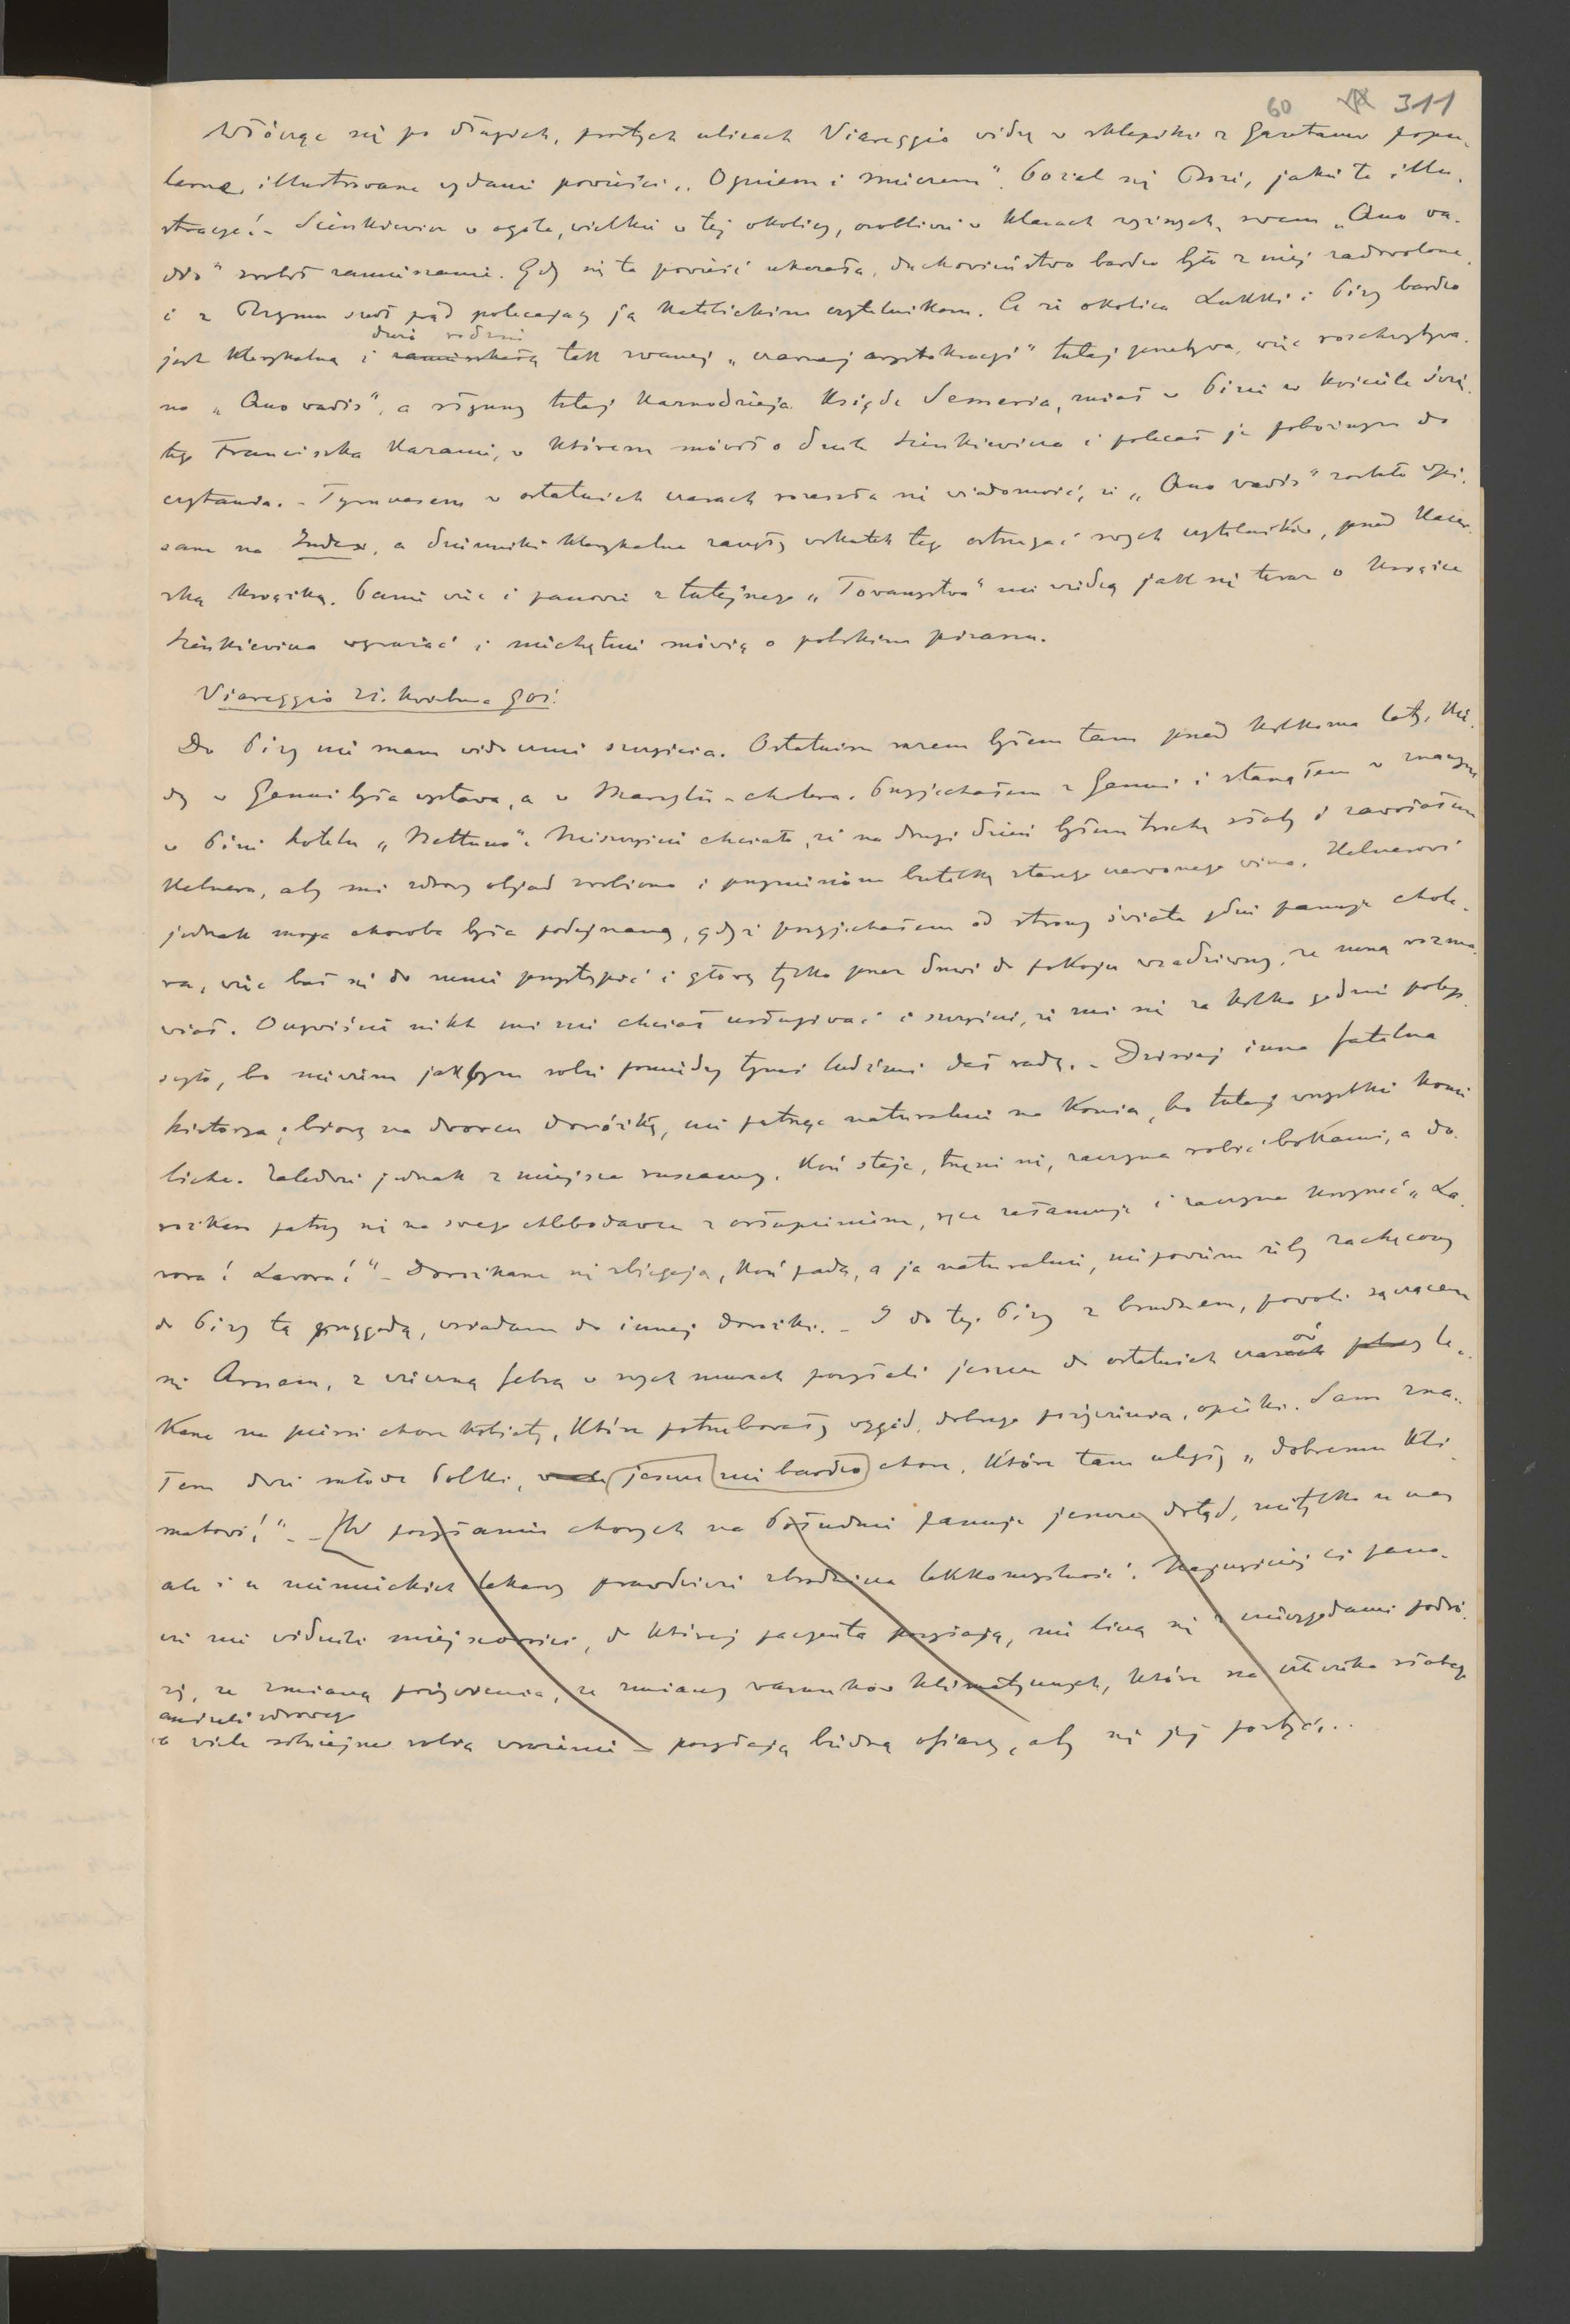 60 311
Włócząc się po długich, prostych ulicach Viareggio widzę w sklepiku z gazetami popu-
larne, illustrowane wydanie powieści „Ogniem i mieczem“. Pożal się Boże, jakie te illu-
stracye! – Sienkiewicz w ogóle, wielkie w tej okolicy, osobliwie w klasach wyższych, swem „Quo va-
dis“ zrobił zamieszanie. Gdy się ta powieść ukazała, duchowieństwo bardzo było z niej zadowolone,
i z Rzymu szedł prąd polecający ją katolickim czytelnikom. A że okolica Lukki i Pizy bardzo
dużo rodzin
jest klerykalna i zamieszkałą tak zwanej „czarnej arystokracyi“ tutaj przebywa, więc rozchwytywa-
no „Quo vadis“, a słynny tutaj kaznodzieja Ksiądz Semeria, miał w Pizie w kościele świę-
tego Franciszka kazanie, w którem mówił o duchu Sienkiewicza i polecał je pobożnym do
czytania. – Tymczasem w ostatnich czasach rozeszła się wiadomość, że „Quo vadis“ zostało wpi-
sane na Index, a dzienniki klerykalne zaczęły wskutek tego ostrzegać swych czytelników, przed kacer-
ską książką. Panie więc i panowie z tutejszego „Towarzystwa“ nie wiedzą jak się teraz o książce
Sienkiewicza wyrażać i niechętnie mówią o polskim pisarzu.
Viareggio 21. kwietnia 901.
Do Pizy nie mam widocznie szczęścia. Ostatnim razem byłem tam przed kilkoma laty, kie-
dy w Genui była wystawa, a w Marsylii – cholera. Przyjechałem z Genui i stanąłem w znanym
w Pizie hotelu „Nettuno“. Nieszczęście chciało, że na drugi dzień byłem trochę słaby i zawołałem
kelnera, aby mi zdrowy objad zrobiono i przyniesiono butelkę starego czerwonego wina. Kelnerowi
jednak moja choroba była podejrzaną, gdyż przyjechałem od strony świata gdzie panuje chole-
ra, więc bał się do mnie przystąpić i głowę tylko przez drzwi do pokoju wsadziwszy, ze mną rozma-
wiał. Oczywiście nikt mi nie chciał usługiwać i szczęście, że mi się za kilka godzin polep-
szyło, bo niewiem jakbym sobie pomiędzy tymi ludźmi dał radę. – Dzisiaj inna fatalna
historya; biorę na dworcu dorożkę, nie patrząc naturalnie na konia, bo tutaj wszystkie konie
liche. Zaledwie jednak z miejsca ruszamy, koń staje, trzęsie się, zaczyna robić bokami, a do-
rożkarz patrzy się na swego chlebodawcę z osłupieniem, ręce załamuje i zaczyna krzyczeć „La-
vora! Lavora!“ – Dorożkarze się zbiegają, koń pada, a ja naturalnie, nie powiem żeby zachęcony
do Pizy tą przygodą, wsiadam do innej dorożki. – I do tej Pizy z brudnem, powoli sączącem
się Arnem, z wieczną febrą w swych murach posyłali jeszcze do ostatnich czasów le-
karze na piersi chore kobiety, które potrzebowały wygód, dobrego pożywienia, opieki. Sam zna-
łem dwie młode Polki, jeszcze nie bardzo chore, które tam uległy „dobremu kli-
matowi!“ – [W posyłaniu chorych na Południe panuje jeszcze dotąd, nietylko u nas
ale i u niemieckich lekarzy prawdziwie zbrodnicza lekkomyślność. Najczęściej ci pano-
wie nie widzieli miejscowości, do której pacyenta posyłają, nie liczą się z niewygodami podró-
ży, ze zmianą pożywienia, ze zmianą warunków klimatycznych, które na człowieka słabego
aniżeli zdrowego
o wiele silniejsze robią wrażenie – posyłają biedną ofiarę, aby się jej pozbyć...